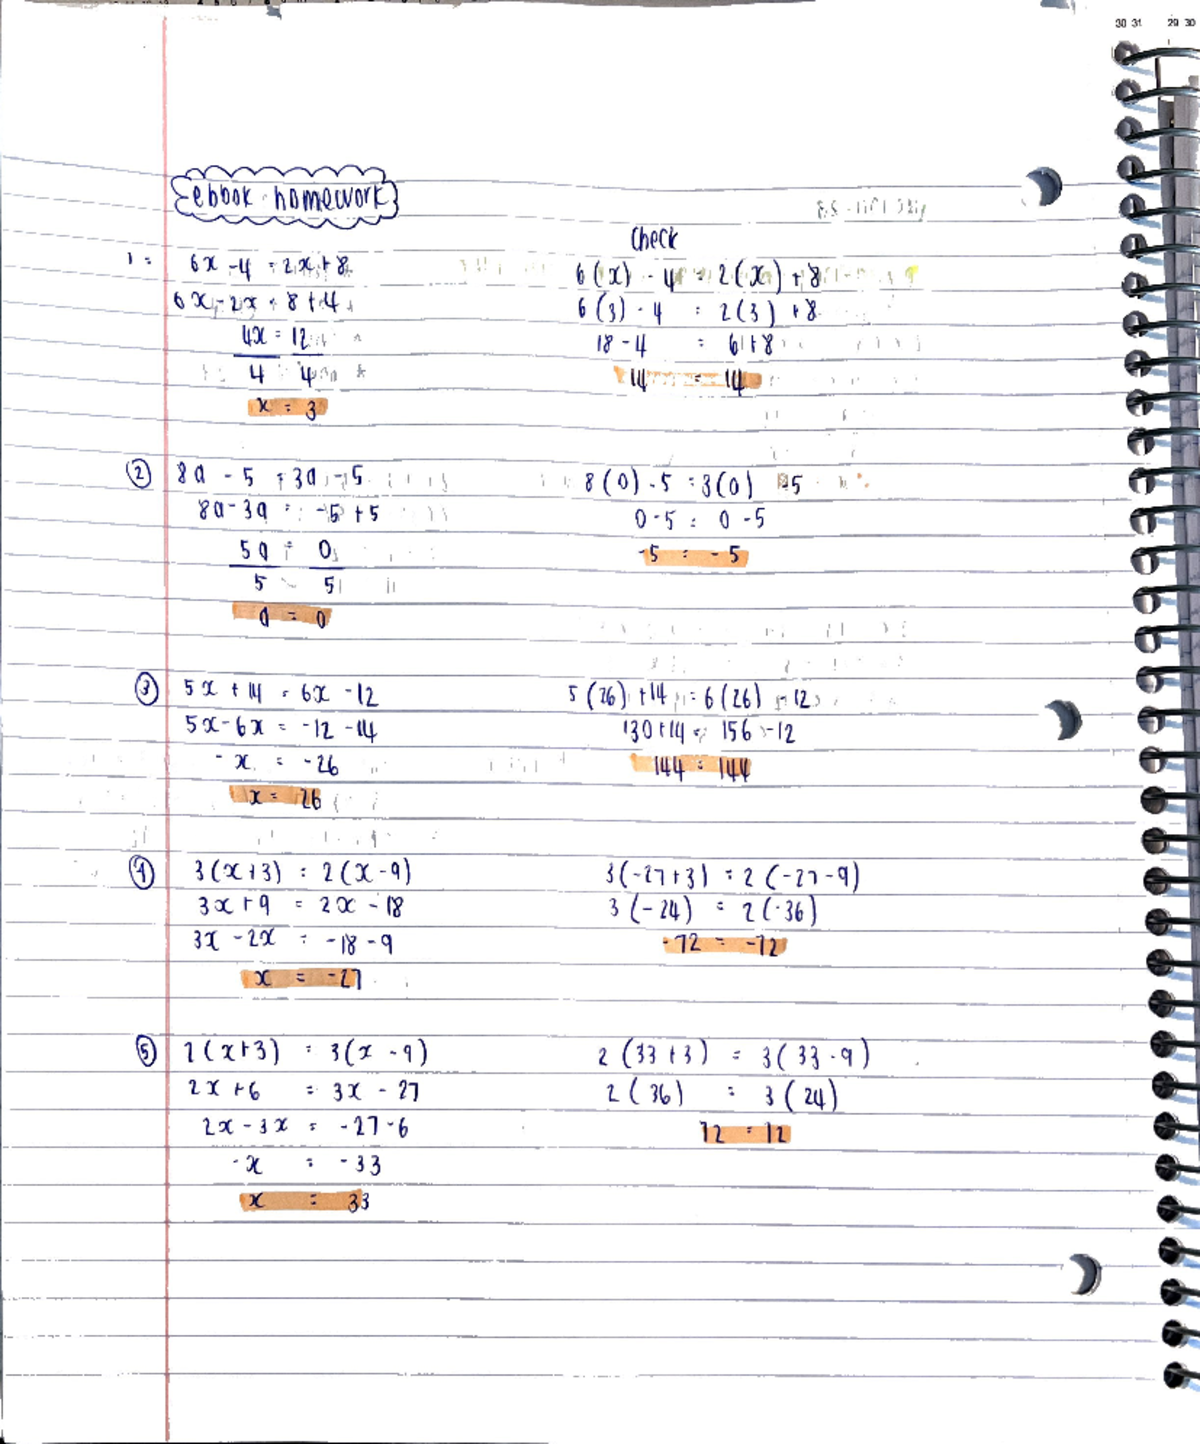 30 31 29 30
ebook homework
Check
1: 6x - 4 = 2x + 8
6x - 2x = 8 + 4
4x = 12
4 4
x = 3
6(x) - 4 = 2(x) + 8
6(3) - 4 = 2(3) + 8
18 - 4 = 6 + 8
14 = 14
② 8a - 5 = 3a - 5
8a - 3a = -5 + 5
5a = 0
5 5
a = 0
8(0) - 5 = 3(0) - 5
0 - 5 = 0 - 5
-5 = -5
③ 5x + 14 = 6x - 12
5x - 6x = -12 - 14
-x = -26
x = 26
5(26) + 14 = 6(26) - 12
130 + 14 = 156 - 12
144 = 144
④ 3(x + 3) = 2(x - 9)
3x + 9 = 2x - 18
3x - 2x = -18 - 9
x = -27
3(-27 + 3) = 2(-27 - 9)
3(-24) = 2(-36)
-72 = -72
⑤ 2(x + 3) = 3(x - 9)
2x + 6 = 3x - 27
2x - 3x = -27 - 6
-x = -33
x = 33
2(33 + 3) = 3(33 - 9)
2(36) = 3(24)
72 = 72